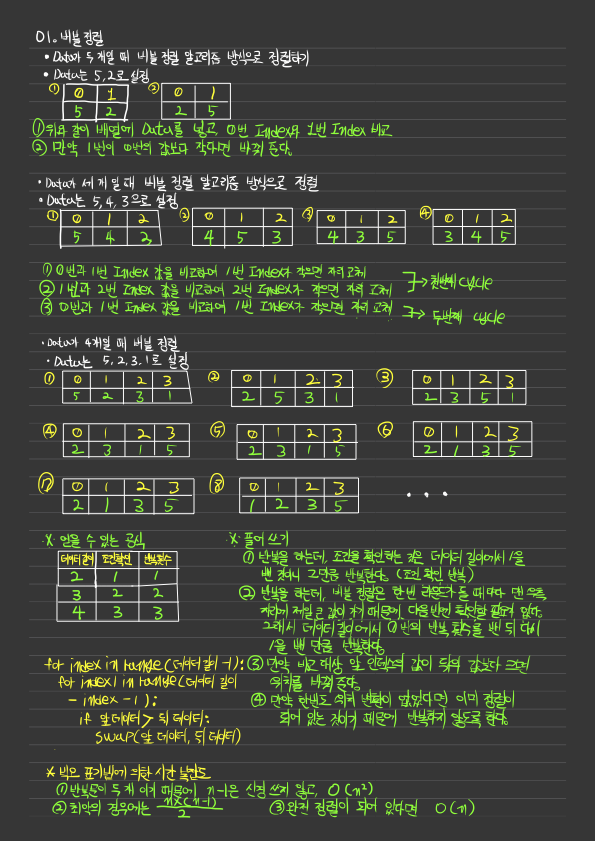 01. 버블 정렬
• Data가 두개일 때 버블 정렬 알고리즘 방식으로 정렬하기
• Data는 5, 2로 설정
① 0 1 ② 0 1
5 2 2 5
① 위와 같이 배열에 Data를 넣고 0번 Index와 1번 Index 비교
② 만약 1번이 0번의 값보다 작다면 바꿔 준다.
• Data가 세개일때 버블 정렬 알고리즘 방식으로 정렬
• Data는 5, 4, 3으로 설정
① 0 1 2 ② 0 1 2 ③ 0 1 2 ④ 0 1 2
5 4 3 4 5 3 4 3 5 3 4 5
① 0번과 1번 Index 값을 비교하여 1번 Index가 작으면 자리 교체
② 1번과 2번 Index 값을 비교하여 2번 Index가 작으면 자리 교체 → 첫번째 cycle
③ 0번과 1번 Index 값을 비교하여 1번 Index가 작으면 자리 교체 → 두번째 cycle
• Data가 4개일 때 버블 정렬
• Data는 5, 2, 3, 1로 설정
① 0 1 2 3 ② 0 1 2 3 ③ 0 1 2 3
5 2 3 1 2 5 3 1 2 3 5 1
④ 0 1 2 3 ⑤ 0 1 2 3 ⑥ 0 1 2 3
2 3 1 5 2 3 1 5 2 1 3 5
⑦ 0 1 2 3 ⑧ 0 1 2 3 ...
2 1 3 5 1 2 3 5
※ 얻을 수 있는 공식
데이터 길이 조건확인 반복횟수
2 1 1
3 2 2
4 3 3
for index in range(데이터 길이 -1):
for index1 in range(데이터 길이
- index - 1):
if 앞데이터 > 뒤 데이터:
swap(앞 데이터, 뒤 데이터)
※ 풀어 쓰기
① 반복을 하는데, 조건을 확인하는 것은 데이터 길이에서 1을
뺀 것이니 그만큼 반복한다. (조건 확인 반복)
② 반복을 하는데, 버블 정렬은 한번 라운드를 돌 때마다 맨 우측
자리에 제일 큰 값이 가기 때문에, 다음번엔 확인할 필요가 없다.
그래서 데이터 길이에서 ①번의 반복 횟수를 뺀 뒤 다시
1을 뺀 만큼 반복한다.
③ 만약 비교 대상 앞 인덱스의 값이 뒤의 값보다 크면
위치를 바꿔준다.
④ 만약 한번도 위치 변환이 없었다면 이미 정렬이
되어 있는 것이기 때문에 반복하지 않도록 한다.
※ 빅오 표기법에 의한 시간 복잡도
① 반복문이 두개 이기 때문에 n-1은 신경 쓰지 않고, O(n²)
② 최악의 경우에는 n×(n-1)/2 ③ 완전 정렬이 되어 있다면 O(n)